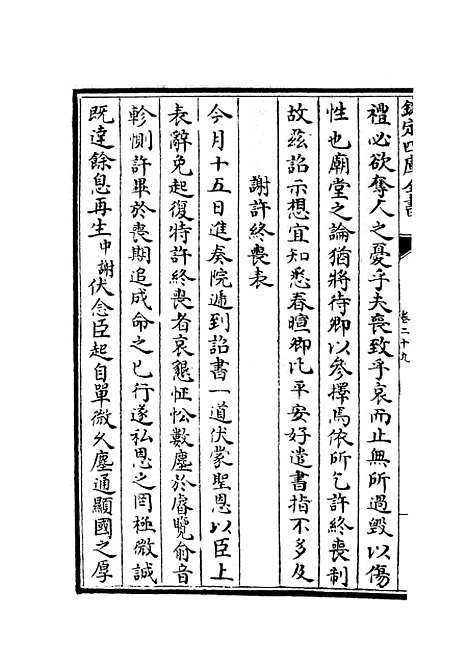 欽定四庫全書
卷二十九
禮必欲奪人之憂乎夫喪致乎哀而止無所過毀以傷
性也廟堂之論猶將待卿以參擇焉依所乞許終喪制
故茲詔示想宜知悉春暄卿比平安好遣書指不多及
謝許終喪表
今月十五日進奏院逓到詔書一道伏蒙聖恩以臣上
表辭免起復特許終喪者哀懇怔忪數塵於睿覽俞音
軫惻許畢於喪期追成命之已行遂私恩之罔極微誠
既達餘息再生中謝伏念臣起自單微久塵通顯國之厚